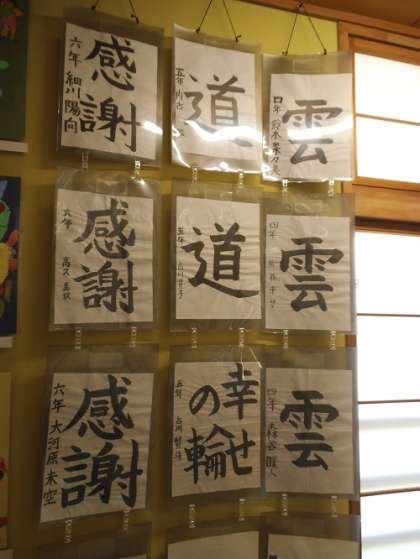 感謝
六年 細川陽向
道
五年
雲
四年
感謝
六年
道
五年
雲
四年
感謝
六年 大河原未空
幸せ
の輪
五年
雲
四年